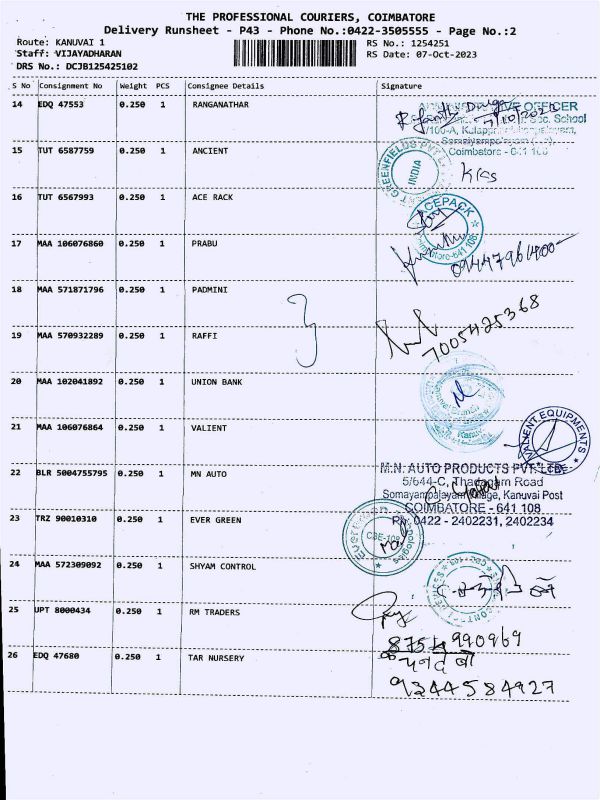 THE PROFESSIONAL COURIERS, COIMBATORE
Delivery Runsheet - P43 - Phone No.:0422-3505555 - Page No.:2
Route: KANUVAI 1 RS No.: 1254251
Staff: VIJAYADHARAN RS Date: 07-Oct-2023
DRS No.: DCJB125425102
S No Consignment No Weight PCS Consignee Details Signature
14 EDQ 47553 0.250 1 RANGANATHAR
OFFICER
Sec. School
Coimbatore - 641 108
15 TUT 6587759 0.250 1 ANCIENT
GREENFIELDS PVT
INDIA
16 TUT 6567993 0.250 1 ACE RACK
ACEPACK
641 108
17 MAA 106076860 0.250 1 PRABU
09447961400
18 MAA 571871796 0.250 1 PADMINI
7005425368
19 MAA 570932289 0.250 1 RAFFI
20 MAA 102041892 0.250 1 UNION BANK
21 MAA 106076864 0.250 1 VALIENT
VALIENT EQUIPMENTS
CBE
22 BLR 5004755795 0.250 1 MN AUTO
M.N. AUTO PRODUCTS PVT. LTD.
5/644-C, Thadagam Road
Somayampalayam Village, Kanuvai Post
COIMBATORE - 641 108
Ph: 0422 - 2402231, 2402234
23 TRZ 90010310 0.250 1 EVER GREEN
CBE-108
24 MAA 572309092 0.250 1 SHYAM CONTROL
25 UPT 8000434 0.250 1 RM TRADERS
26 EDQ 47680 0.250 1 TAR NURSERY
9344584927